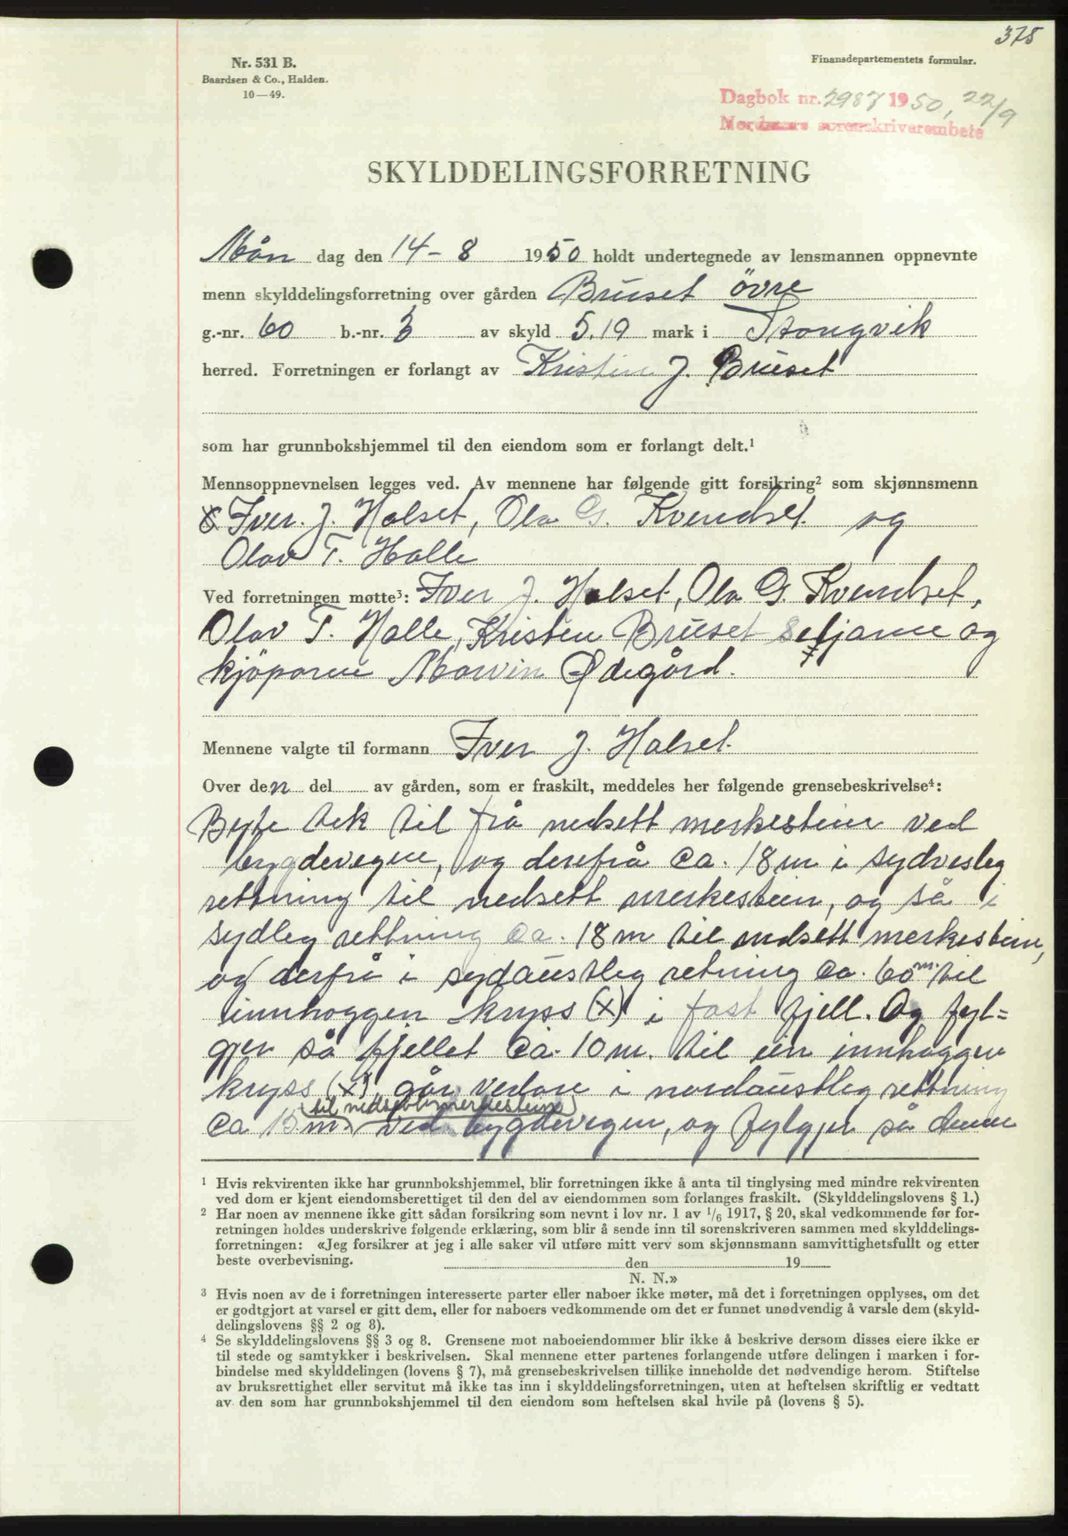 375
Nr. 531 B.
Baardsen & Co., Halden.
10—49.
Finansdepartementets formular.
Dagbok nr. 2987 1950, 22/9
Nordmøre sorenskriverembete
SKYLDDELINGSFORRETNING
Mån dag den 14-8 1950 holdt undertegnede av lensmannen oppnevnte
menn skylddelingsforretning over gården Bruset övre
g.-nr. 60 b.-nr. 3 av skyld 5.19 mark i Stangvik
herred. Forretningen er forlangt av Kristen J. Bruset
som har grunnbokshjemmel til den eiendom som er forlangt delt.¹
Mennsoppnevnelsen legges ved. Av mennene har følgende gitt forsikring² som skjønnsmenn
Iver J. Halset, Ola G. Kvendset og
Olav T. Halle
Ved forretningen møtte³: Iver J. Halset, Ola G. Kvendset,
Olav T. Halle, Kristen Bruset seljaren og
kjöparen Marvin Ødegård.
Mennene valgte til formann Iver J. Halset.
Over den del av gården, som er fraskilt, meddeles her følgende grensebeskrivelse⁴:
Byte tek til frå nedsett merkestein ved
bygdevegen, og derefrå ca. 18 m i sydvesleg
rettning til nedsett merkestein, og så i
sydleg rettning ca. 18 m til nedsett merkestein,
og derfrå i sydaustleg retning ca. 60 m. til
innhoggen kryss (x) i fast fjell. Og fyl=
gjer så fjellet ca. 10 m. til ein innhoggen
kryss (x) går vedare i nordaustleg rettning
ca 15 m (til nedsett merkestein) ved bygdevegen, og fylgjer så denne
¹ Hvis rekvirenten ikke har grunnbokshjemmel, blir forretningen ikke å anta til tinglysing med mindre rekvirenten
ved dom er kjent eiendomsberettiget til den del av eiendommen som forlanges fraskilt. (Skylddelingslovens § 1.)
² Har noen av mennene ikke gitt sådan forsikring som nevnt i lov nr. 1 av 1/6 1917, § 20, skal vedkommende før for-
retningen holdes underskrive følgende erklæring, som blir å sende inn til sorenskriveren sammen med skylddelings-
forretningen: «Jeg forsikrer at jeg i alle saker vil utføre mitt verv som skjønnsmann samvittighetsfullt og etter
beste overbevisning. den 19
N. N.»
³ Hvis noen av de i forretningen interesserte parter eller naboer ikke møter, må det i forretningen opplyses, om det
er godtgjort at varsel er gitt dem, eller for naboers vedkommende om det er funnet unødvendig å varsle dem (skyld-
delingslovens §§ 2 og 8).
⁴ Se skylddelingslovens §§ 3 og 8. Grensene mot naboeiendommer blir ikke å beskrive dersom disses eiere ikke er
til stede og samtykker i beskrivelsen. Skal mennene etter partenes forlangende utføre delingen i marken i for-
bindelse med skylddelingen (lovens § 7), må grensebeskrivelsen tillike inneholde det nødvendige herom. Stiftelse
av bruksrettighet eller servitut må ikke tas inn i skylddelingsforretningen, uten at heftelsen skriftlig er vedtatt
av den som har grunnbokshjemmel til den eiendom som heftelsen skal hvile på (lovens § 5).